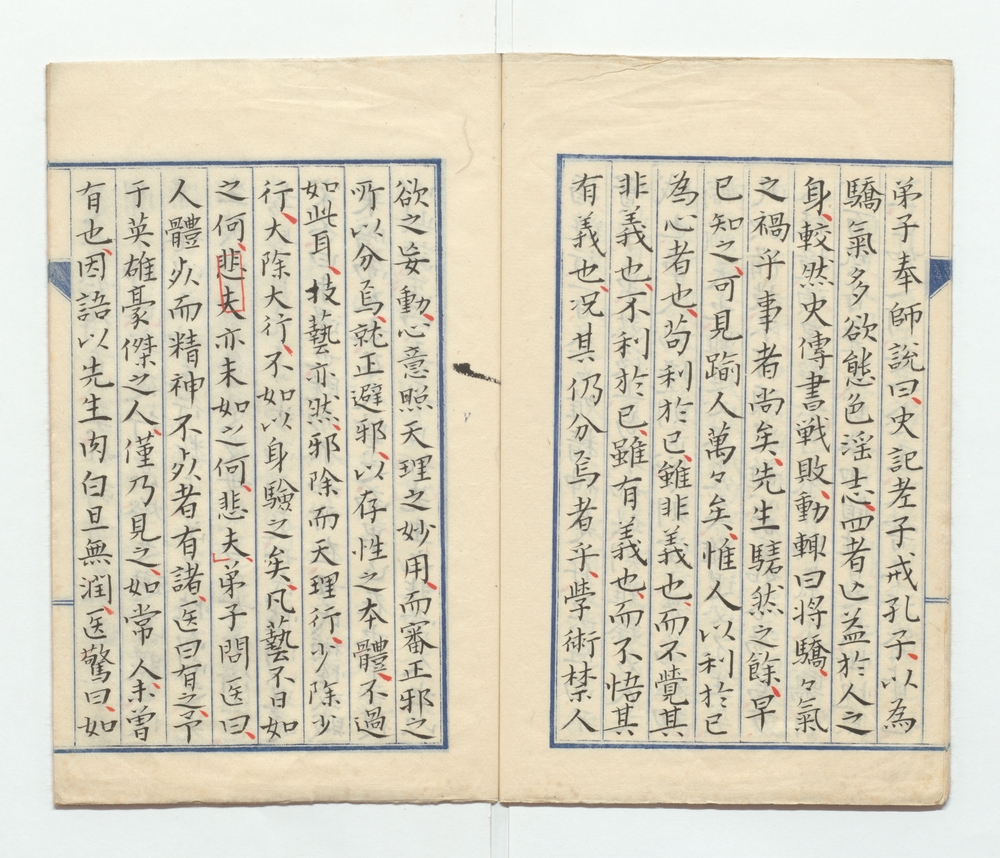 弟子奉師說曰、史記老子戒孔子、以為
驕氣多欲態色淫志、四者亡益於人之
身、較然史傳書戦敗、動輙曰将驕々氣
之禍乎事者尚矣、先生驕然之餘、早
已知之、可見踰人萬々矣、惟人以利於己
為心者也、苟利於己、雖非義也、而不覺其
非義也、不利於已、雖有義也、而不悟其
有義也、况其仍分焉者乎、學術禁人
欲之妄動、心意照天理之妙用、而審正邪之
所以分焉、就正避邪、以存性之本體、不過
如此耳、技藝亦然、邪除而天理行、少除少
行、大除大行、不如以身驗之矣、凡藝不日如
之何、悲夫亦末如之何、悲夫、」弟子問医曰、
人體歩而精神不歩者有諸、医曰有之、予
于英雄豪傑之人、僅乃見之、如常人未曽
有也、因語以先生肉白且無潤、医驚曰、如